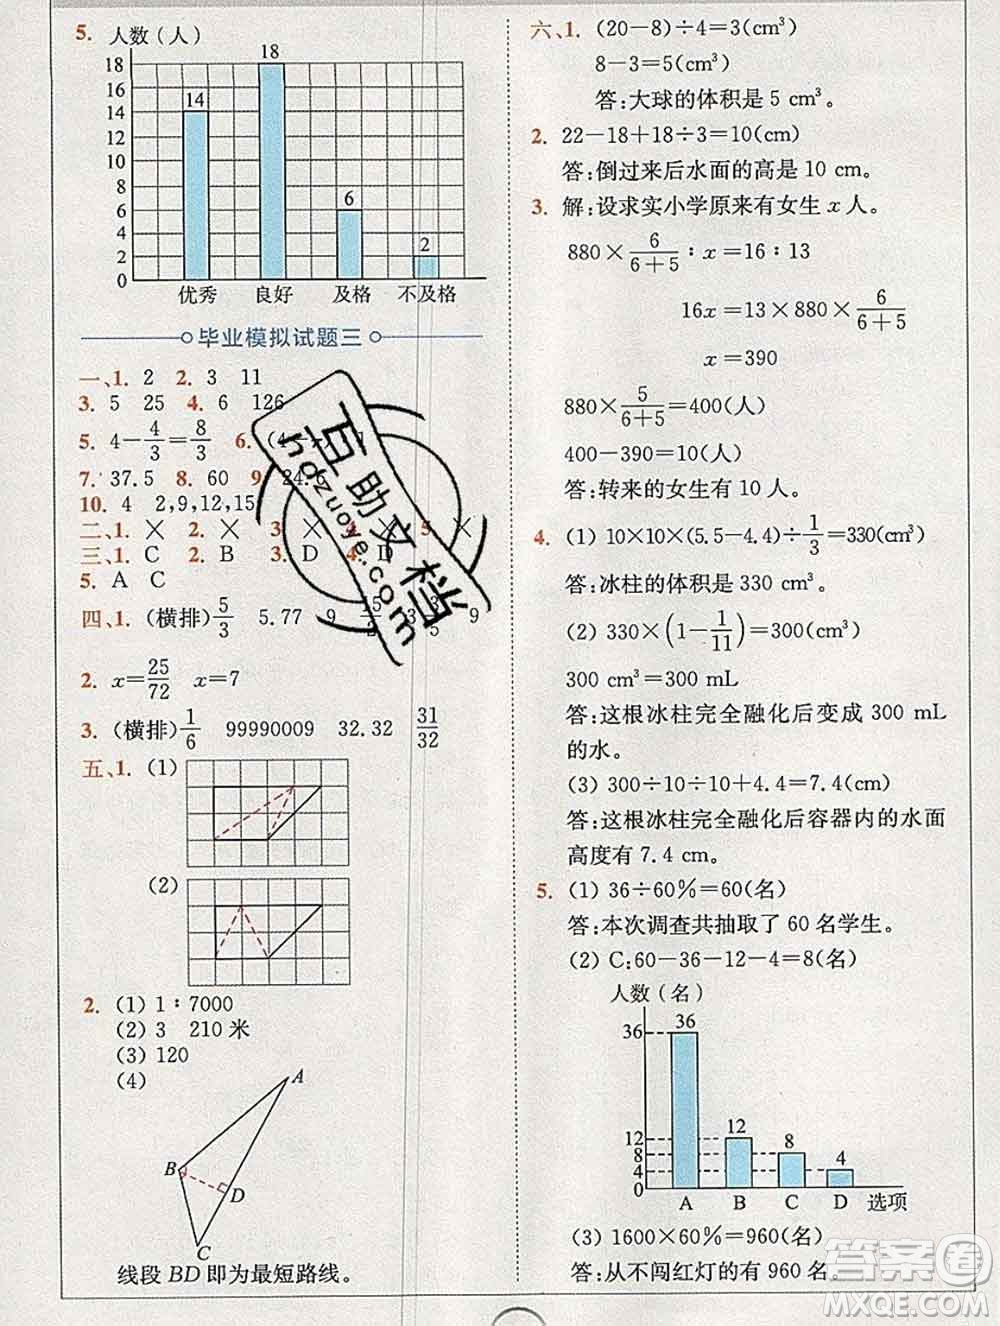 5. 人数(人)
18
16
14
12
10
8
6
4
2
0
14
18
6
2
优秀 良好 及格 不及格
毕业模拟试题三
一、1. 2 2. 3 11
3. 5 25 4. 6 126
5. 4－4/3＝8/3 6. (4
7. 37.5 8. 60 9. 24.6
10. 4 2,9,12,15
二、1. × 2. × 3. × 4. × 5. ×
三、1. C 2. B 3. D 4. D
5. A C
四、1. (横排)5/3 5.77 9 15/2 3 3/5 9
2. x＝25/72 x＝7
3. (横排)1/6 99990009 32.32 31/32
五、1. (1)
(2)
2. (1) 1∶7000
(2) 3 210 米
(3) 120
(4)
A
B
D
C
线段 BD 即为最短路线。
六、1. (20－8)÷4＝3(cm³)
8－3＝5(cm³)
答:大球的体积是 5 cm³。
2. 22－18＋18÷3＝10(cm)
答:倒过来后水面的高是 10 cm。
3. 解:设求实小学原来有女生 x 人。
880×6/(6＋5)∶x＝16∶13
16x＝13×880×6/(6＋5)
x＝390
880×5/(6＋5)＝400(人)
400－390＝10(人)
答:转来的女生有 10 人。
4. (1) 10×10×(5.5－4.4)÷1/3＝330(cm³)
答:冰柱的体积是 330 cm³。
(2) 330×(1－1/11)＝300(cm³)
300 cm³＝300 mL
答:这根冰柱完全融化后变成 300 mL
的水。
(3) 300÷10÷10＋4.4＝7.4(cm)
答:这根冰柱完全融化后容器内的水面
高度有 7.4 cm。
5. (1) 36÷60%＝60(名)
答:本次调查共抽取了 60 名学生。
(2) C:60－36－12－4＝8(名)
人数(名)
36
12
8
4
0
36
12
8
4
A B C D 选项
(3) 1600×60%＝960(名)
答:从不闯红灯的有 960 名。
互助文档
hdzuoye.com
答案圈
MXQE.COM